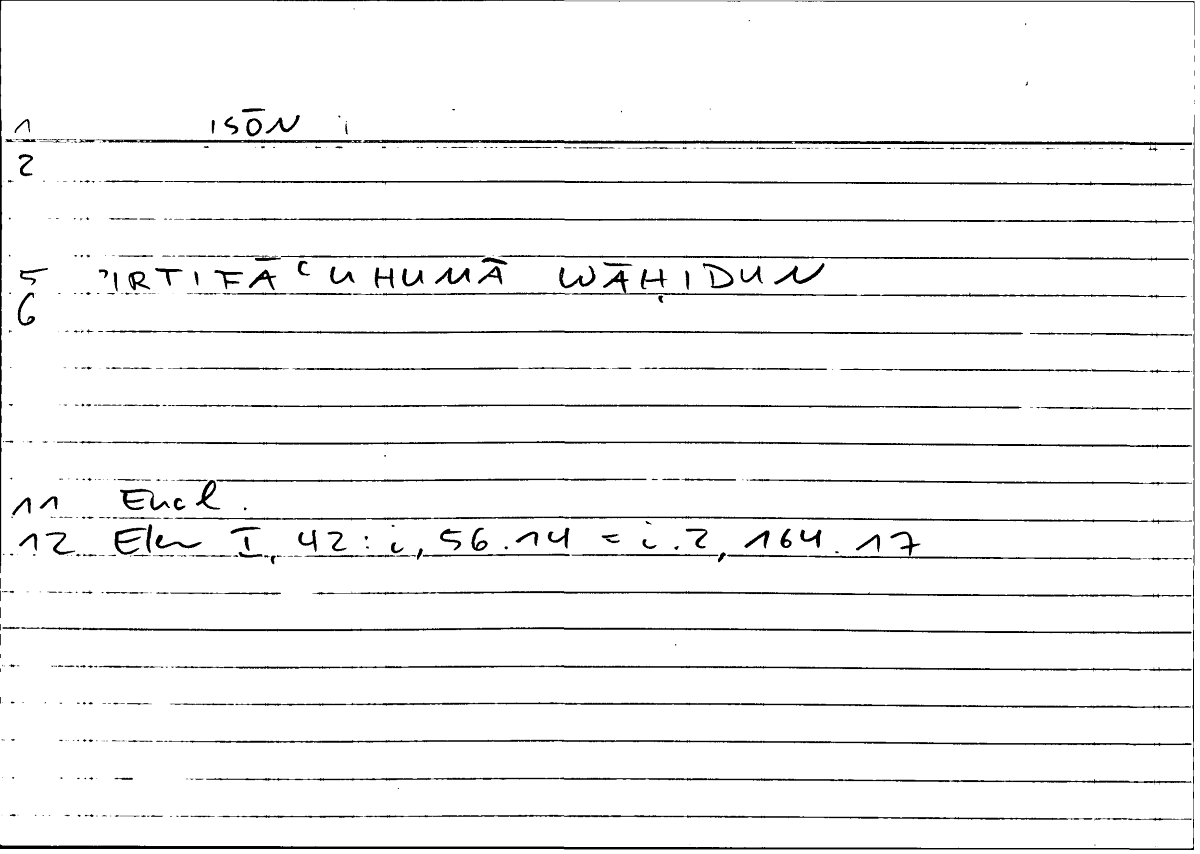 1 ISŌN i
2
5 ʾIRTIFĀʿUHUMĀ WĀḤIDUN
6
11 Eucl.
12 Elem I, 42 : i, 56.14 = i.2, 164.17